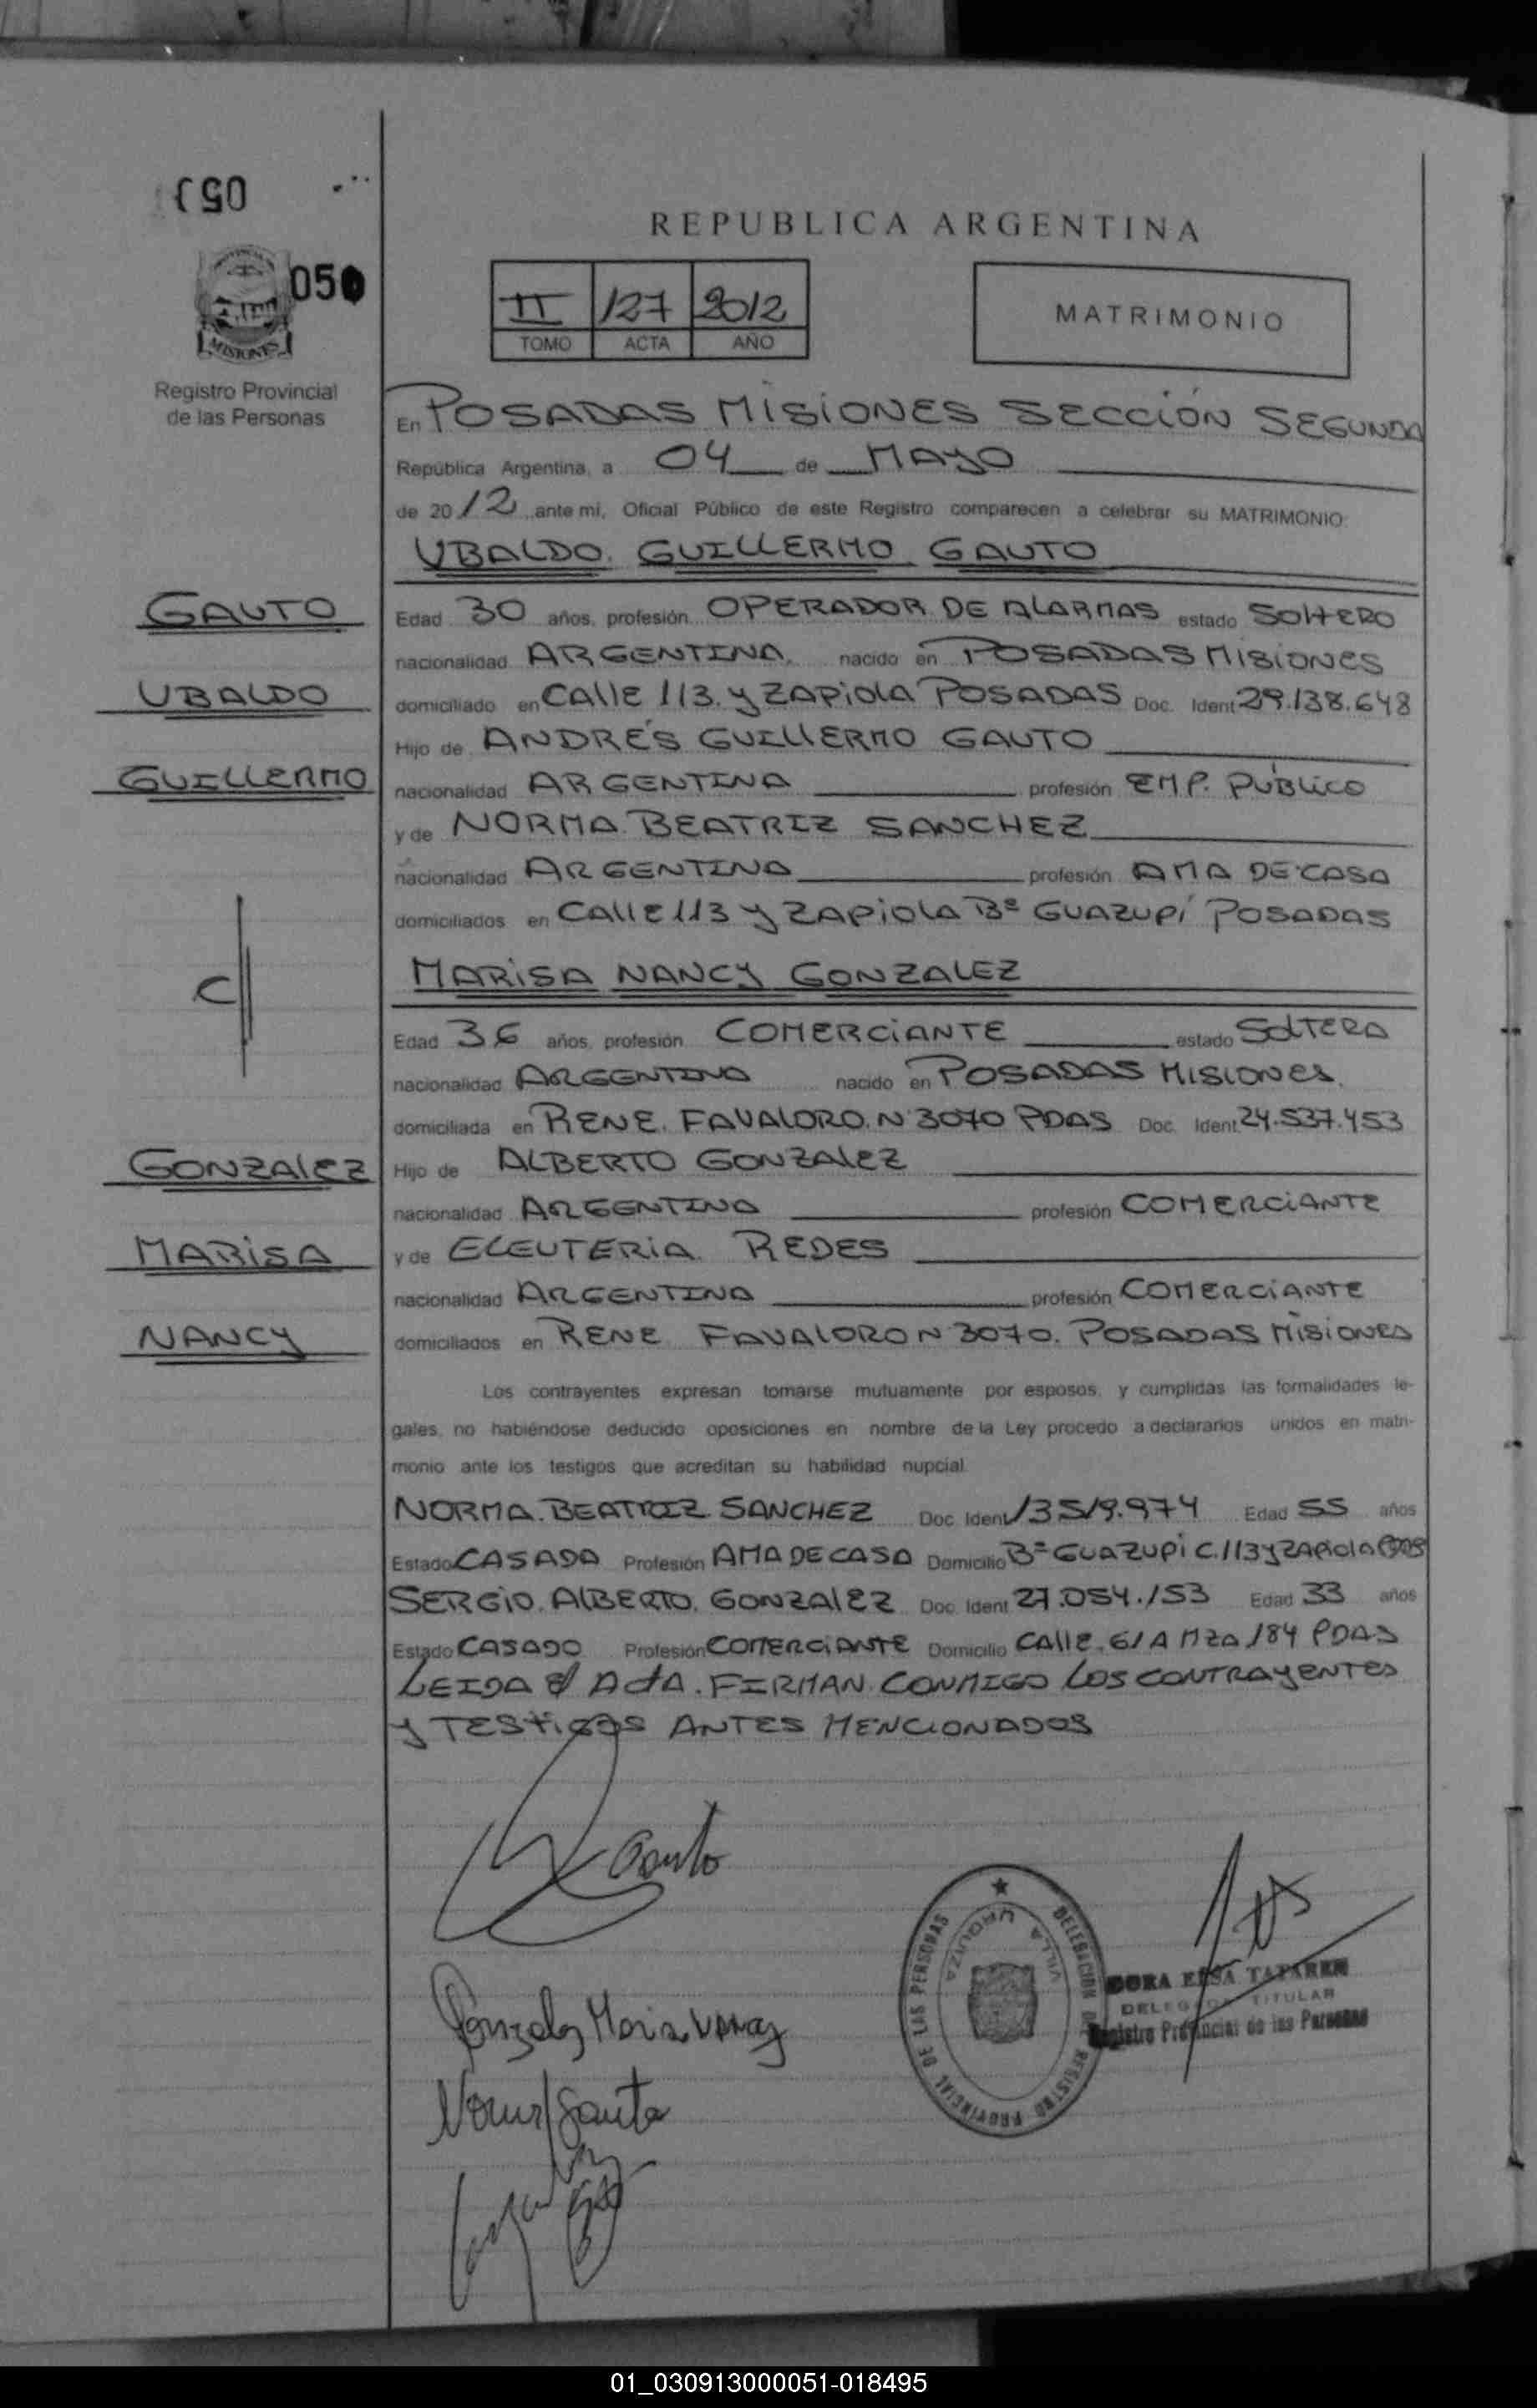 050
REPUBLICA ARGENTINA
II 127 2012
TOMO ACTA AÑO
MATRIMONIO
MISIONES
Registro Provincial
de las Personas
En POSADAS MISIONES SECCIÓN SEGUNDA
República Argentina, a 04 de MAYO
de 2012 ante mi, Oficial Público de este Registro comparecen a celebrar su MATRIMONIO:
UBALDO. GUILLERMO GAUTO
GAUTO
Edad 30 años, profesión OPERADOR DE ALARMAS estado SOLTERO
nacionalidad ARGENTINA. nacido en POSADAS MISIONES
UBALDO
domiciliado en CALLE 113. y ZAPIOLA POSADAS Doc. Ident 29.138.648
Hijo de ANDRÉS GUILLERMO GAUTO
GUILLERMO
nacionalidad ARGENTINA profesión EMP. PÚBLICO
y de NORMA BEATRIZ SANCHEZ
nacionalidad ARGENTINA profesión AMA DE CASA
domiciliados en CALLE 113 y ZAPIOLA Bº GUAZUPÍ POSADAS
C
MARISA NANCY GONZALEZ
Edad 36 años, profesión COMERCIANTE estado SOLTERA
nacionalidad ARGENTINA nacido en POSADAS MISIONES.
domiciliada en RENE. FAVALORO. N 3070 PDAS Doc. Ident 24.537.453
GONZALEZ
Hijo de ALBERTO GONZALEZ
nacionalidad ARGENTINA profesión COMERCIANTE
MARISA
y de ELEUTERIA REDES
nacionalidad ARGENTINA profesión COMERCIANTE
NANCY
domiciliados en RENE FAVALORO N 3070. POSADAS MISIONES
Los contrayentes expresan tomarse mutuamente por esposos, y cumplidas las formalidades le-
gales, no habiéndose deducido oposiciones en nombre de la Ley procedo a declararlos unidos en matri-
monio ante los testigos que acreditan su habilidad nupcial
NORMA. BEATRIZ SANCHEZ Doc. Ident 13519.974 Edad 55 años
Estado CASADA Profesión AMA DE CASA Domicilio Bº GUAZUPI C.113 y ZAPIOLA PDAS
SERGIO. ALBERTO. GONZALEZ Doc. Ident 27.054.153 Edad 33 años
Estado CASADO Profesión COMERCIANTE Domicilio CALLE. 61A MZA 184 PDAS
LEIDA el ACTA. FIRMAN CONMIGO LOS CONTRAYENTES
y TESTIGOS ANTES MENCIONADOS
Gauto
Gonzalez Marisa Nancy
DELEGACION DEL REGISTRO PROVINCIAL DE LAS PERSONAS
VILLA URQUIZA
DORA ELSA TAPAREN
DELEGADO TITULAR
Registro Provincial de las Personas
01_030913000051-018495